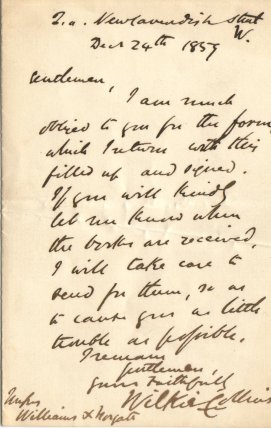 2.a. New Cavendish Street
W.
Decr 24th 1859
Gentlemen,
I am much
obliged to you for the form
which I return with this
filled up and signed.
If you will kindly
let me know when
the books are received,
I will take care to
send for them, so as
to cause you as little
trouble as possible.
I remain
Gentlemen,
yours faithfully
Wilkie Collins
Messrs
Williams & Norgate